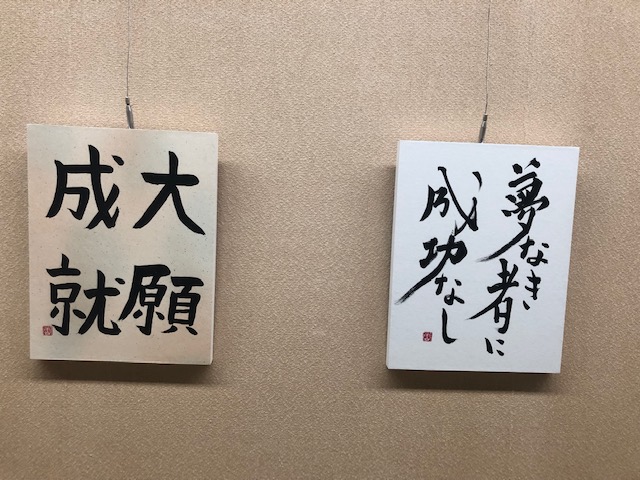 大願
成就
夢なき者に
成功なし